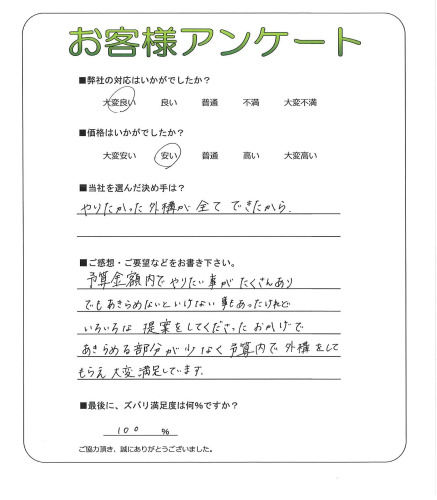 お客様アンケート
■弊社の対応はいかがでしたか？
大変良い 良い 普通 不満 大変不満
■価格はいかがでしたか？
大変安い 安い 普通 高い 大変高い
■当社を選んだ決め手は？
やりたかった外構が全てできたから.
■ご感想・ご要望などをお書き下さい。
予算金額内でやりたい事がたくさんあり
でもあきらめないといけない事もあったけれど
いろいろな提案をしてくださったおかげで
あきらめる部分が少なく予算内で外構をして
もらえ大変満足しています.
■最後に、ズバリ満足度は何％ですか？
100 ％
ご協力頂き、誠にありがとうございました。